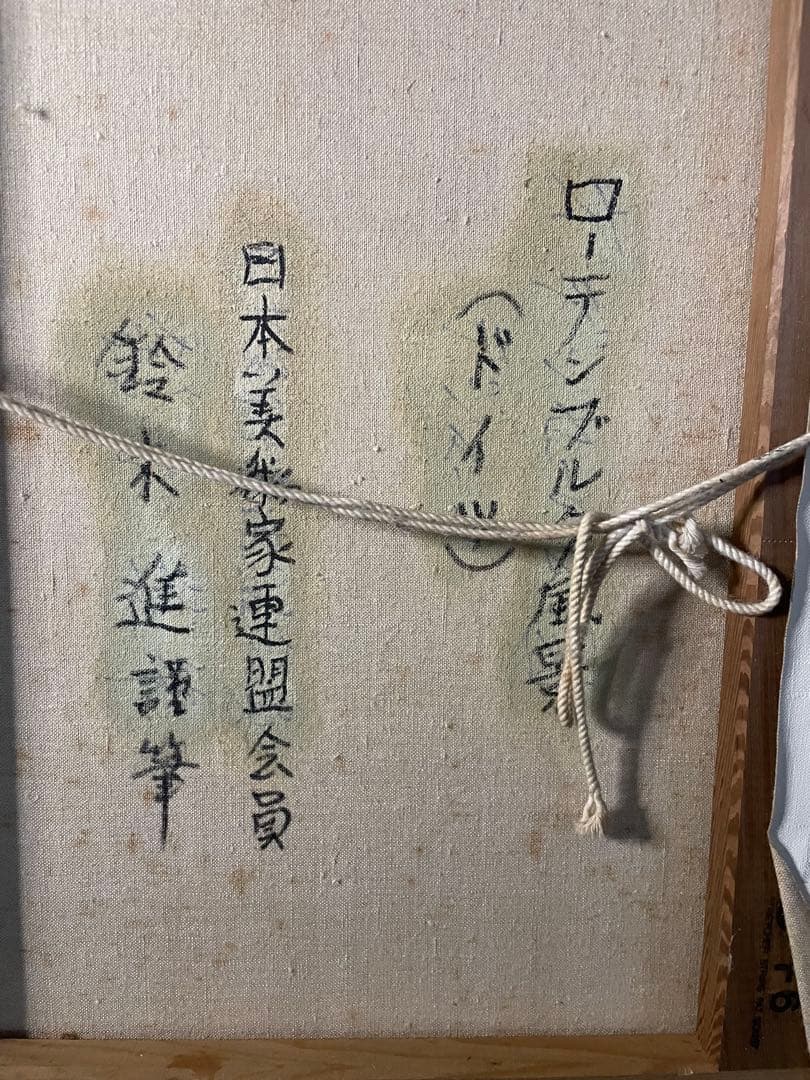 ローテンブルク風景
(ドイツ)
日本美術家連盟会員
鈴木 進 謹筆